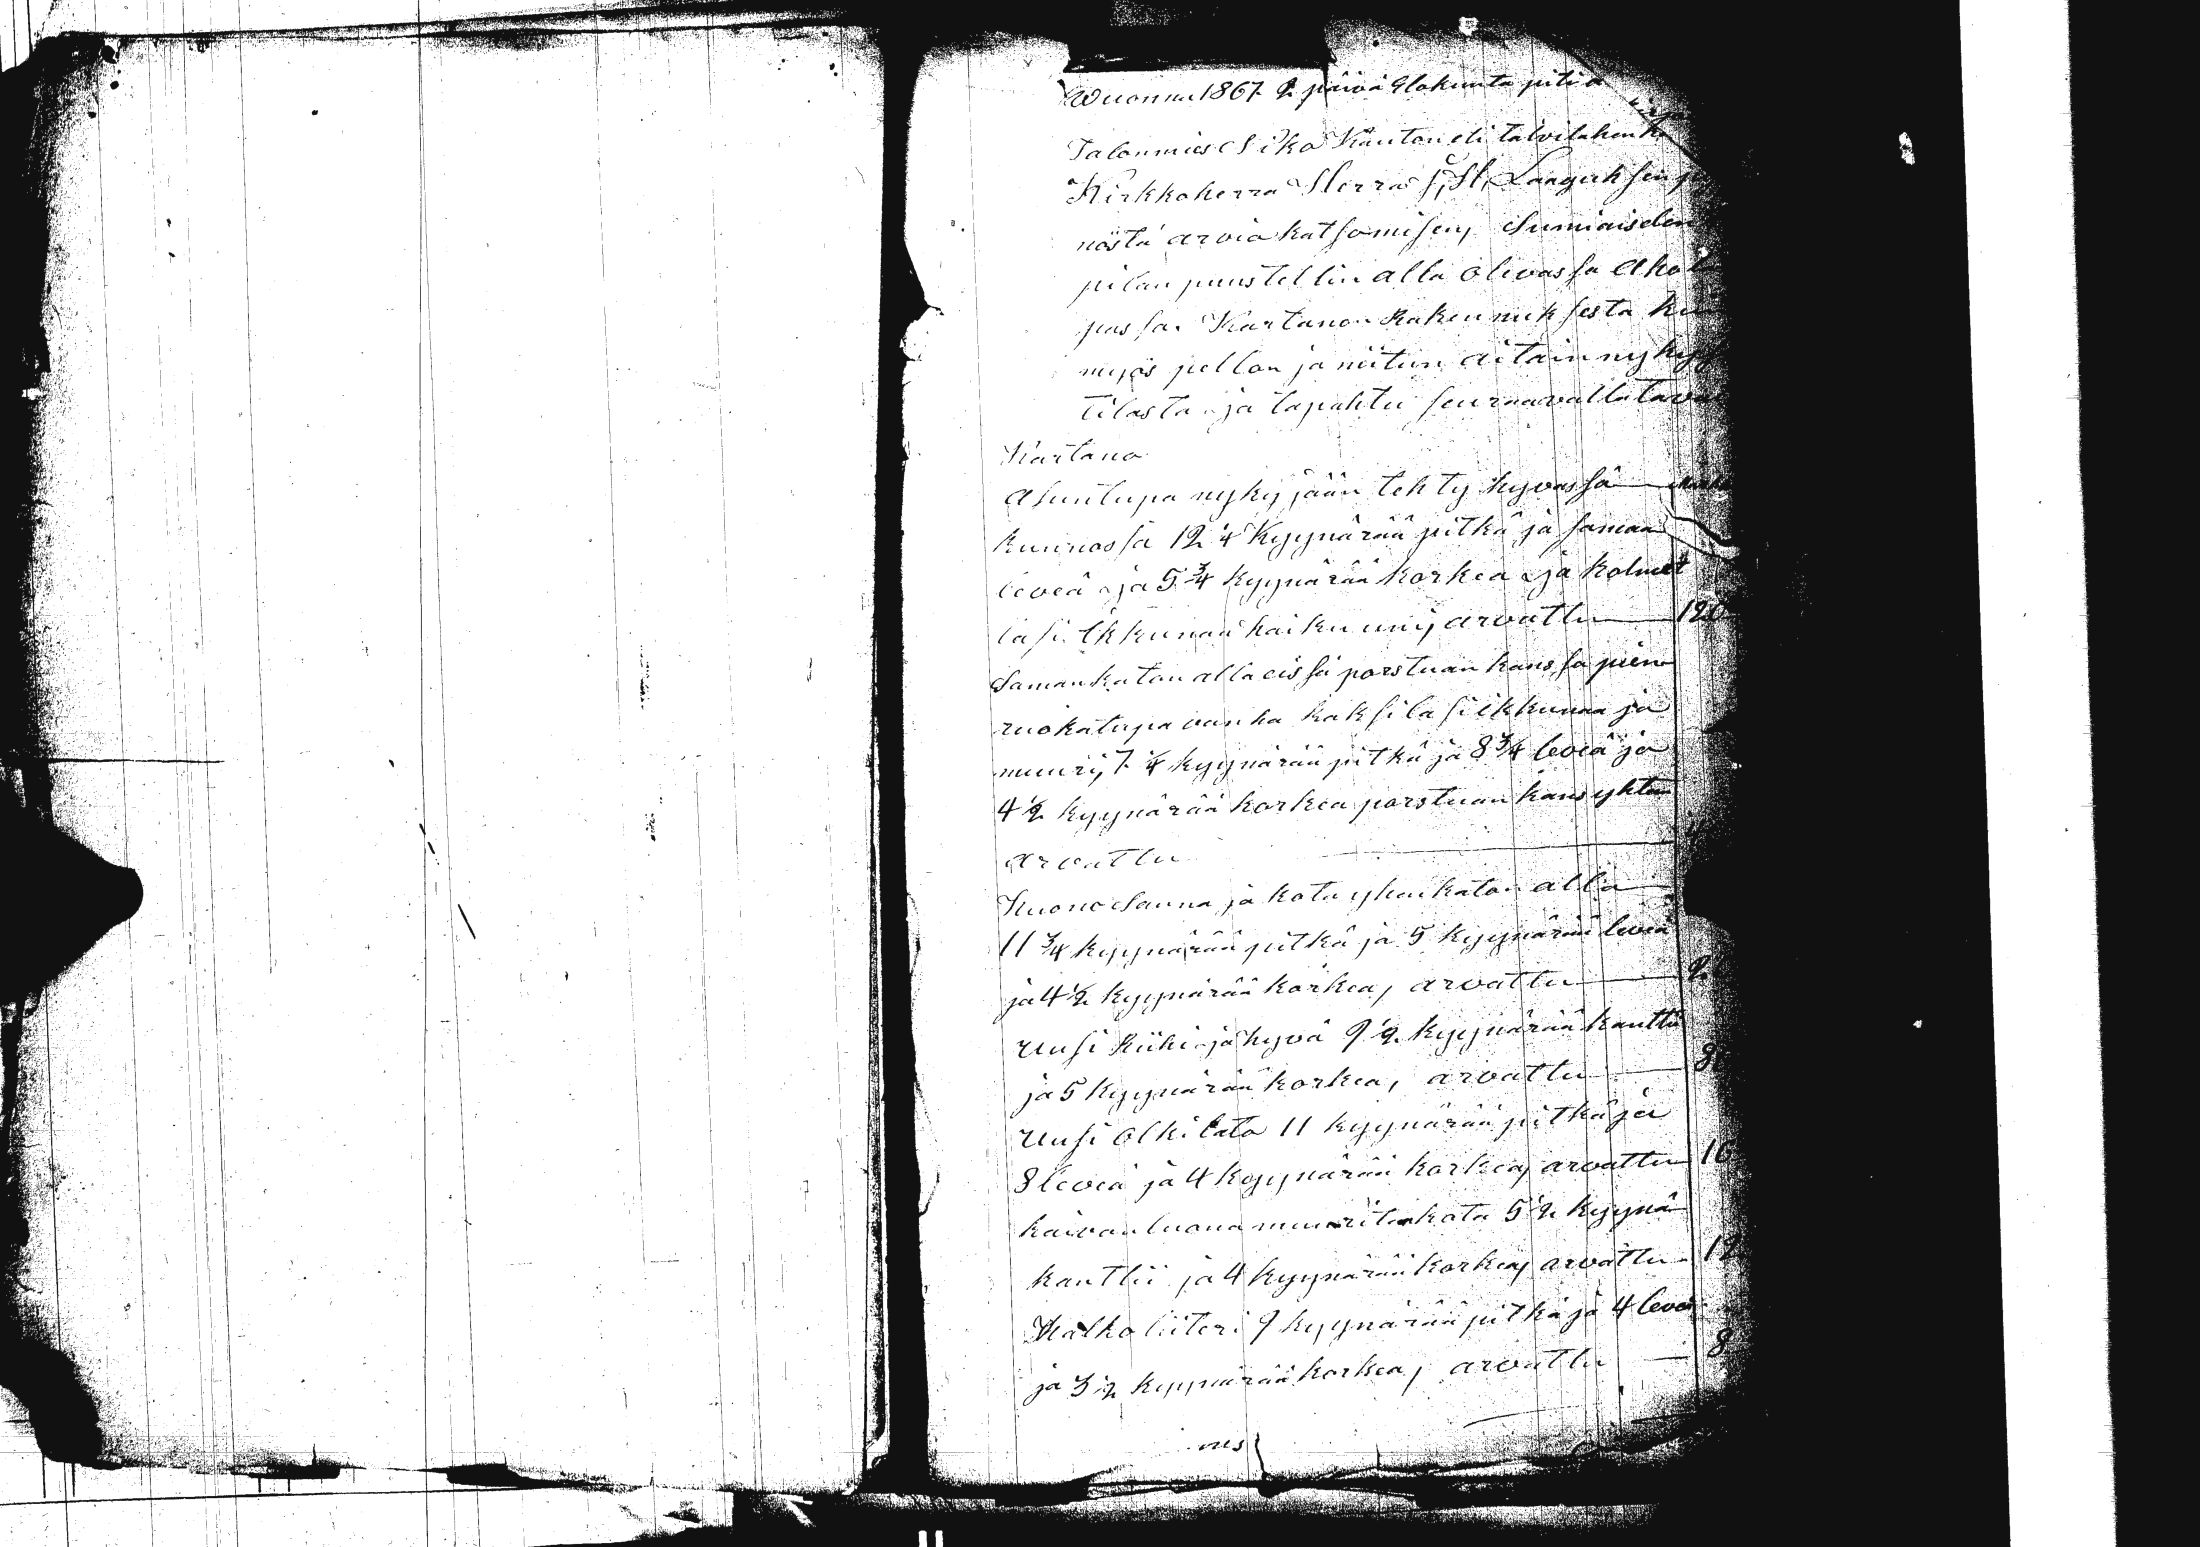 Wuonna 1867 2 päivä Elokuuta piti a
Talonmies
Kirkkoherra Herra
nöstä arviokatsomisen, Sumiaisden
pilan puustellin alla olevassa Aho
passa. Kartanon Rakennuksesta ku
myös pellon ja niitun aitain nyky
tilasta ja tapahtu seuraavallatava
Kartano
Asuntupa nykyjään tehty hyvässä
kunnossa 12 1/4 Kyynärää pitkä ja samaa
leveä ja 5 3/4 kyynärää korkea ja kolmet
lasi Ikkunaa arvattu 120
Samankaton alla porstuan kanssa pieni
ruokatupa vanha kaksi lasi ikkunaa ja
muuri, 7 1/4 kyynärää pitkä ja 8 3/4 leveä ja
4 1/2 kyynärää korkea porstuan kans yhten
arvattu
Huono Sauna ja kota yhenkaton alla
11 3/4 kyynärää pitkä ja 5 kyynärää leveä
ja 4 1/2 kyynärää korkea, arvattu 2
Uusi Riihi ja hyvä 9 1/2 kyynärää kantti
ja 5 kyynärää korkea, arvattu 8
Uusi Olkilato 11 kyynärää pitkä ja
8 leveä ja 4 kyynärää korkea, arvattu 16
kaivon luona kota 5 1/2 kyynä
kanttii ja 4 kyynärää korkea, arvattu 12
Halkoliiteri 9 kyynärää pitkä ja 4 leveä
ja 3 1/2 kyynärää korkea, arvattu 8